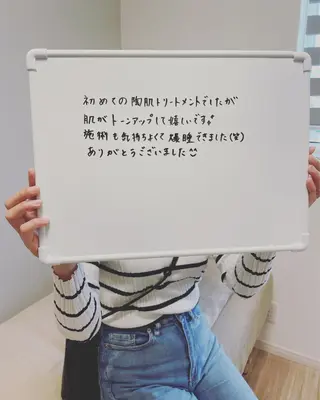 初めての陶肌トリートメントでしたが
肌がトーンアップして嬉しいです
施術も気持ちよくて爆睡できました(笑)
ありがとうございました